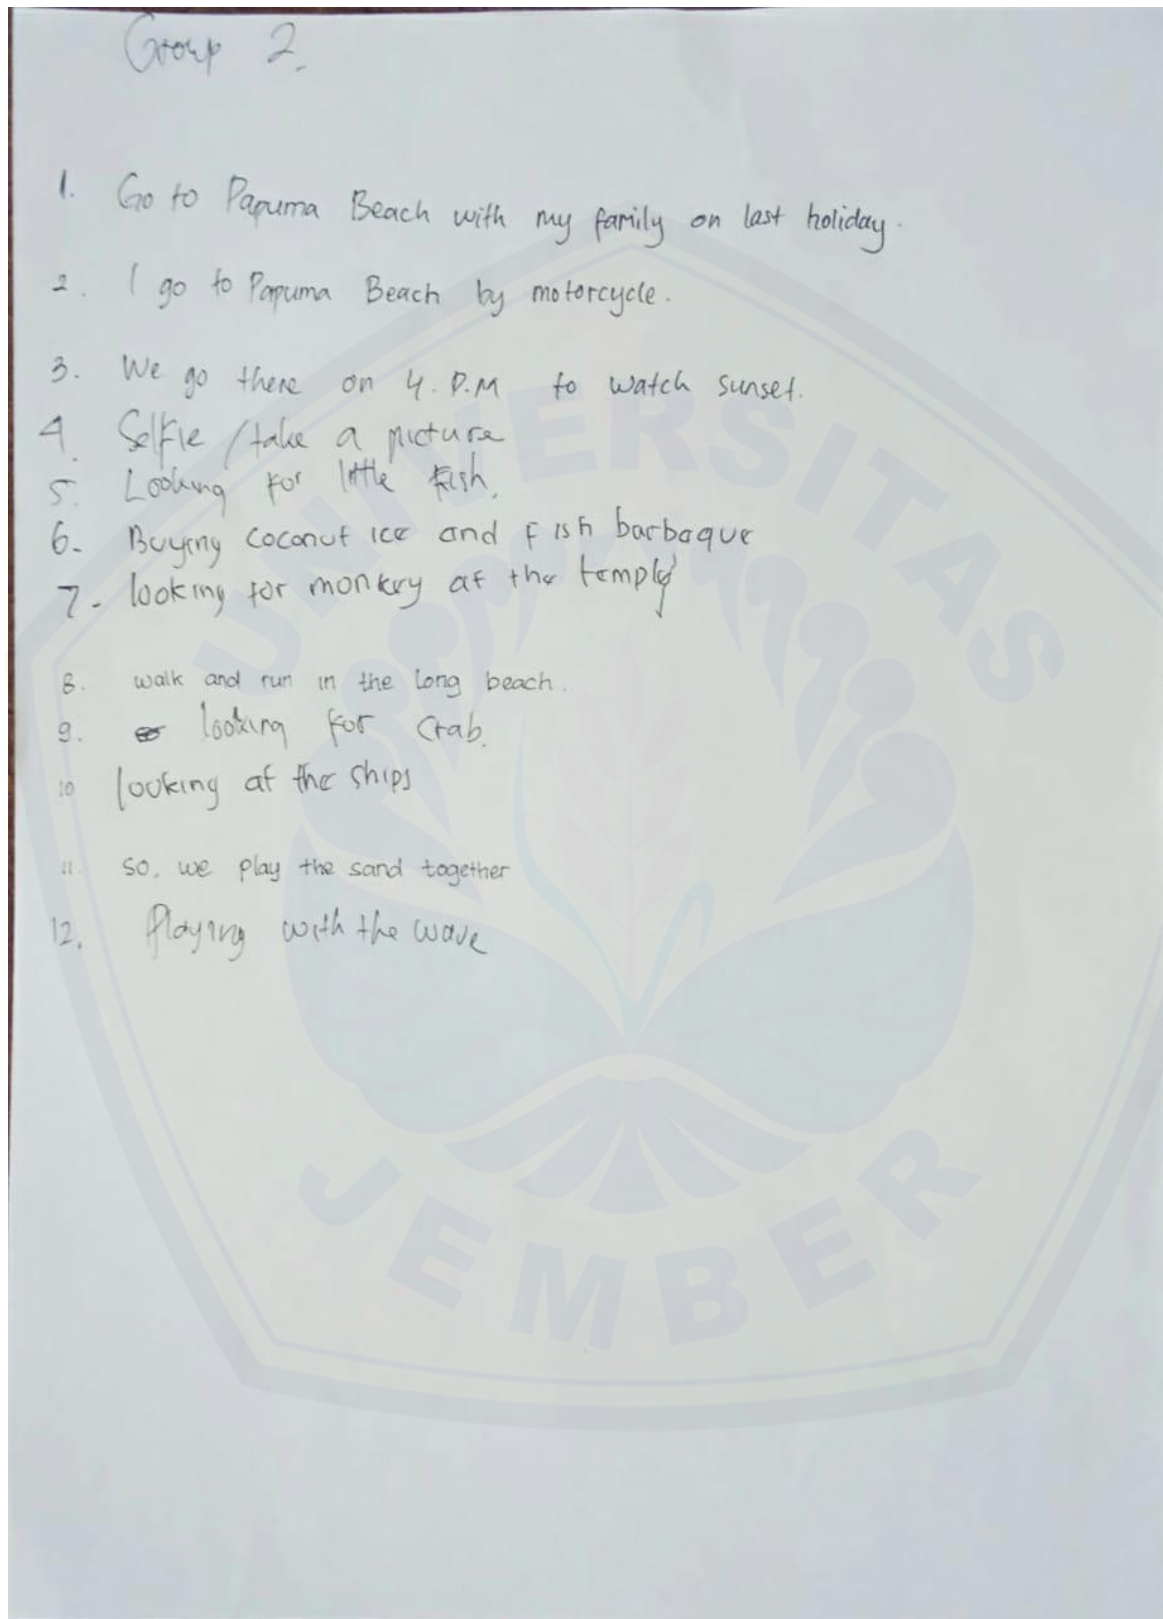 Group 2.
1. Go to Papuma Beach with my family on last holiday.
2. I go to Papuma Beach by motorcycle.
3. We go there on 4. P.M to watch sunset.
4. Selfie / take a picture
5. Looking for little fish.
6. Buying coconut ice and fish barbaque
7. looking for monkey at the temple
8. walk and run in the long beach.
9. looking for crab.
10 looking at the ships
11. so, we play the sand together
12. Playing with the wave
UNIVERSITAS
JEMBER